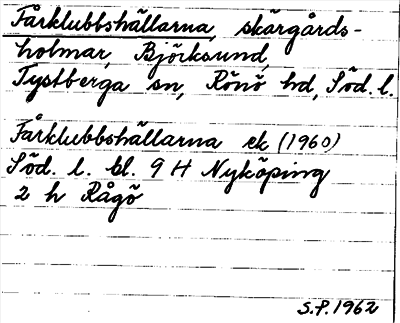 Fårklubbshällarna, skärgårds-
holmar, Björksund,
Tystberga sn, Rönö hd, Söd. l.
Fårklubbshällarna ek (1960)
Söd. l. bl. 9 H Nyköping
2 h Rågö
S.P. 1962